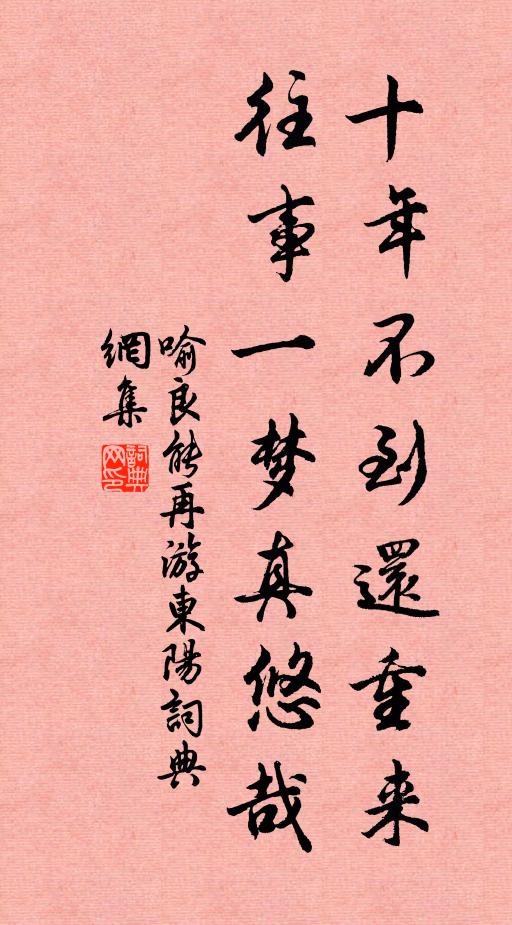 十年不到還重来
往事一梦真悠哉
喻良能再游東陽詞典
網集
詞典網印